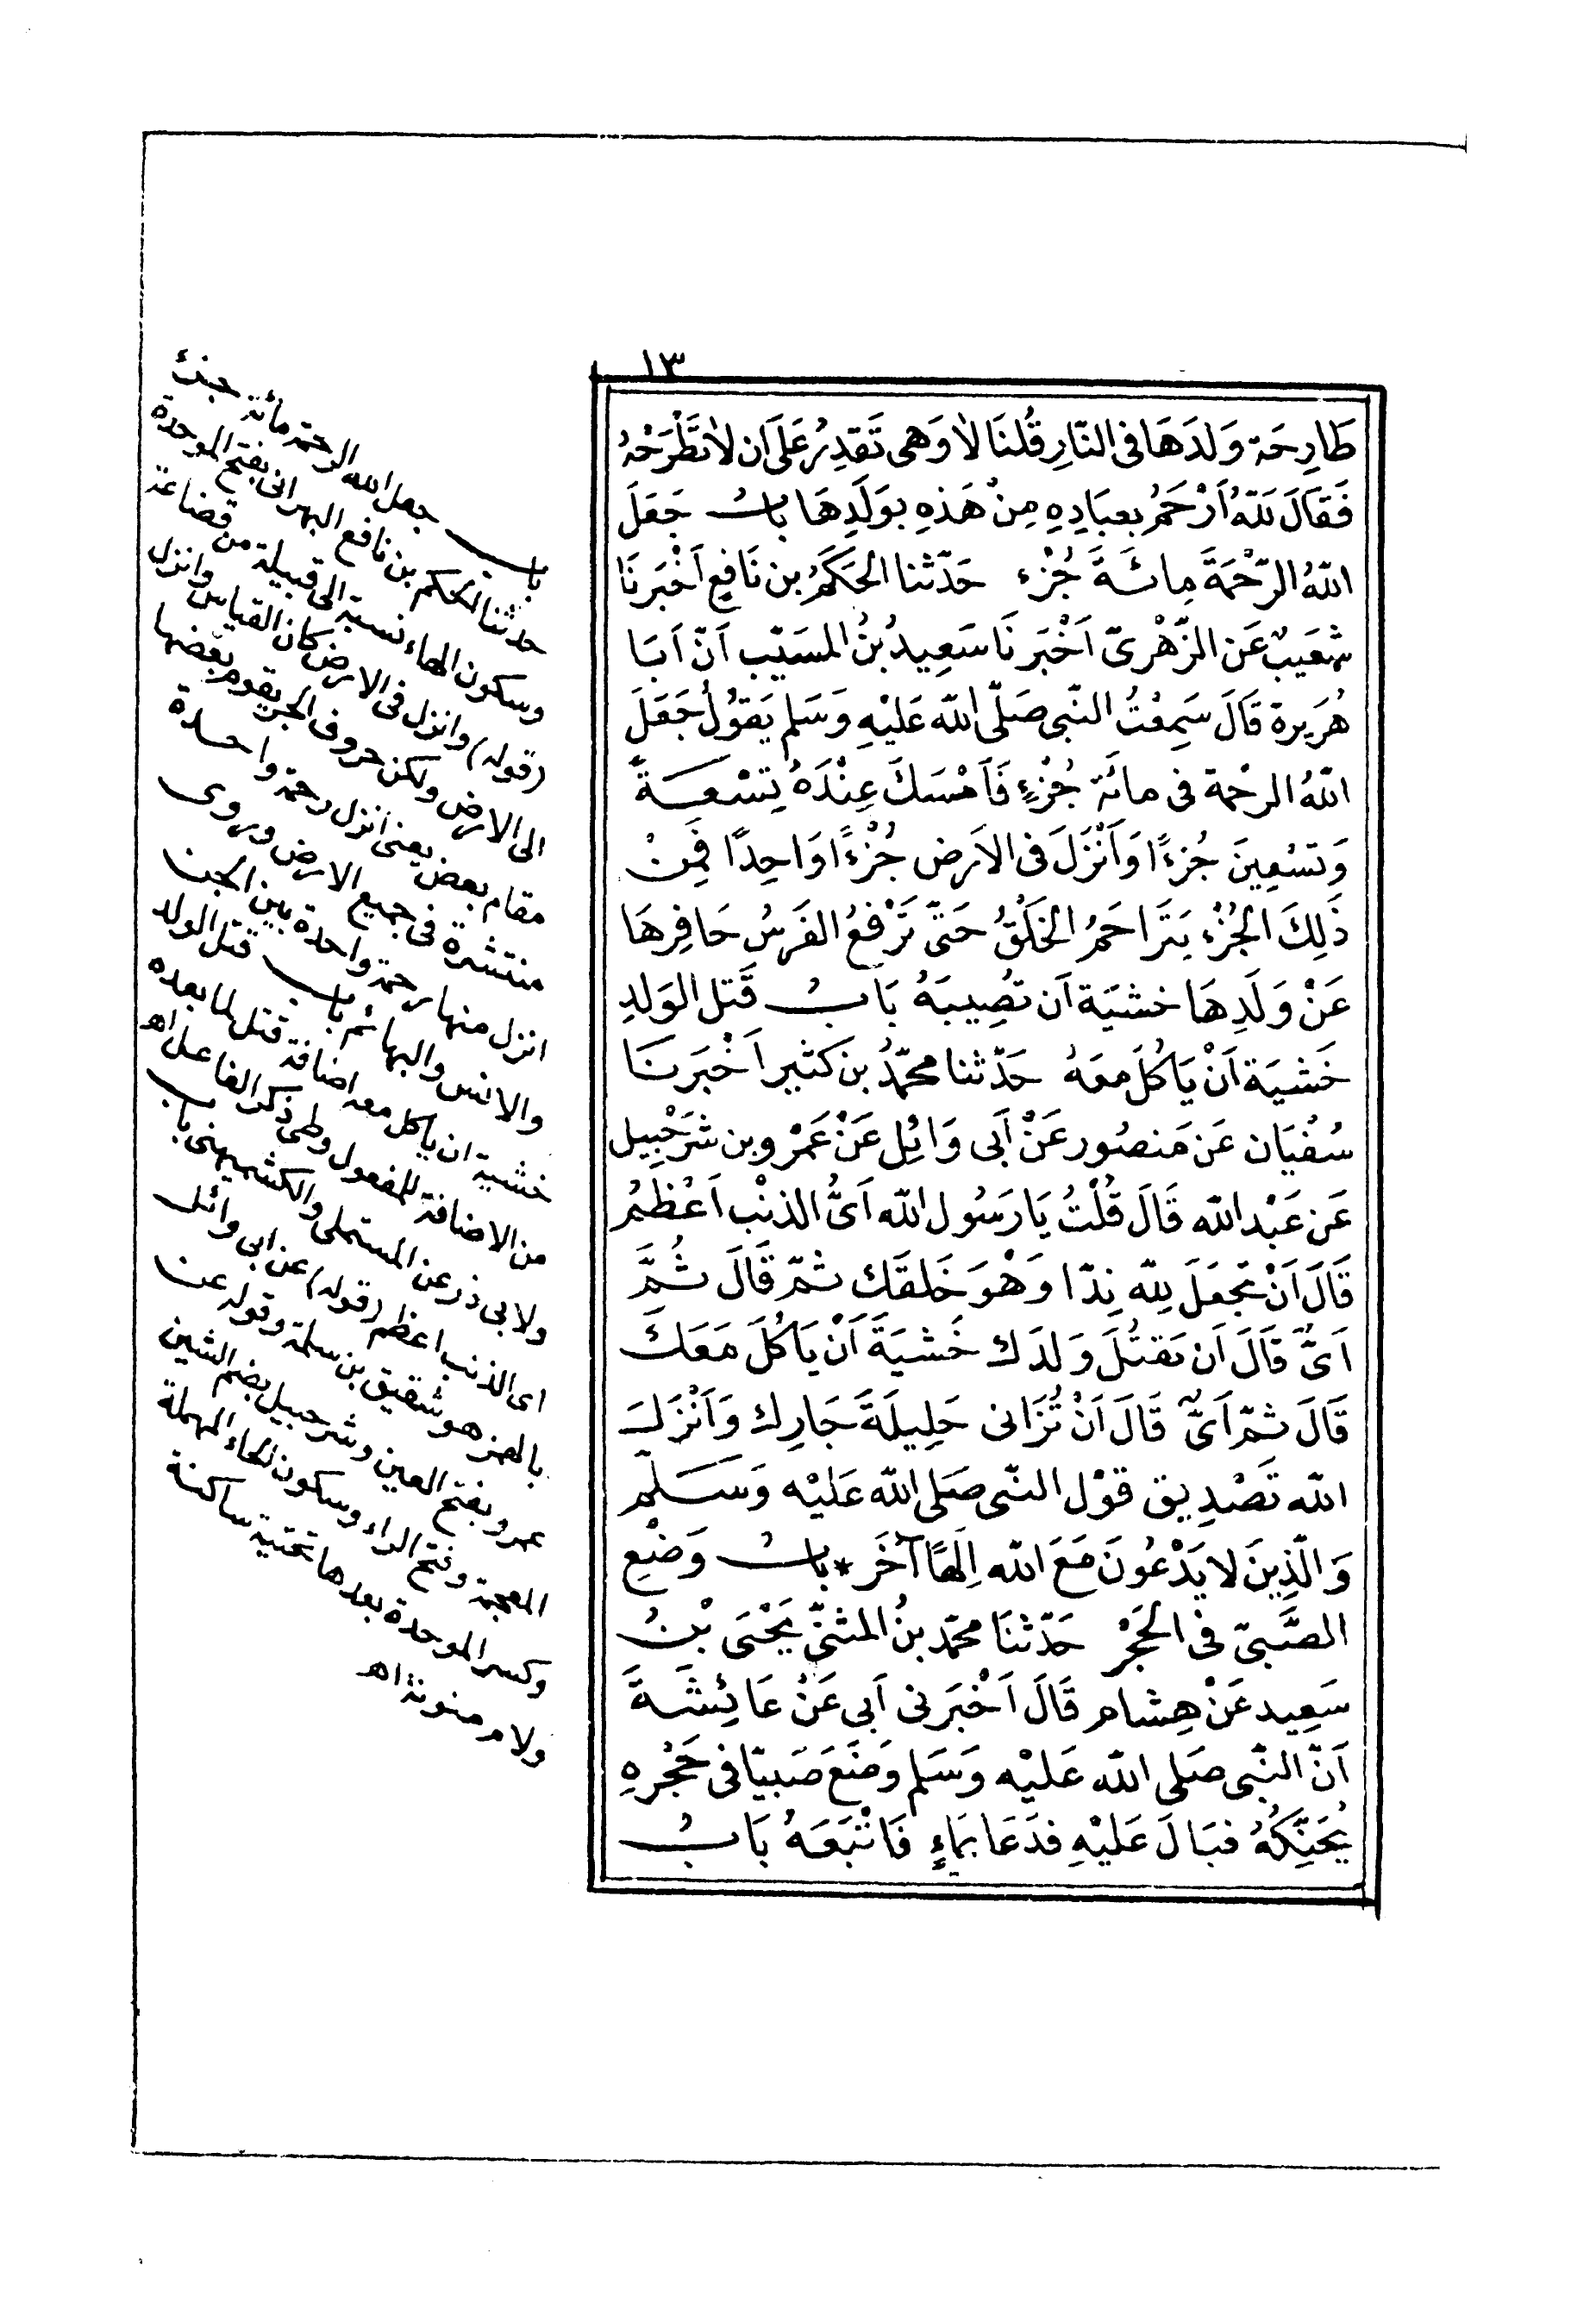 ١٣
طَارِحَة وَلدَهَا فى النَّارِ قُلنَا لاٰ وَهى تَقدِرُ عَلَى اَن لاٰ تَطْرَحْهُ
فَقَالَ لَلّهُ اَرْحَمُ بعبَادِهِ مِنْ هَذهِ بوَلَدِهَا بابُ جَعَلَ
اللهُ الرّحْمَةَ مِائَةَ جُزْء حَدّثنا الحَكَمُ بن نَافِع اَخْبَرنَا
شعَيبٌ عَن الزّهْرىّ اَخْبَرنَا سَعِيدُ بنُ المسَيّب اَنّ اَبَا
هُرَيرة قَالَ سَمِعْتُ النّبى صَلّى اللّه عَليْهِ وَسَلم يَقوُلُ جَعَلَ
اللّهُ الرحْمة فى مائَة جُزْءٍ فَاَمْسَكَ عِنْدَهُ تِسْعَةً
وَتسْعِينَ جُزءًا وَاَنْزَلَ فى الاَرض جُزْءًا وَاحِدًا فمِنْ
ذَلِكَ الجُزْء يَترَاحَمُ الخَلْقُ حَتّى تَرْفعُ الفَرَسُ حَافِرهَا
عَنْ وَلَدِهَا خشيَة اَن تصِيبَهُ بَابُ قَتل الوَلدِ
خَشيَة اَنْ يَاكُلَ معَهُ حَدّثنا محمّدُ بن كَثير اَخْبَرنَا
سُفْيَان عَن مَنصُور عَنْ اَبى وَائِل عَنْ عَمْرو بن شرَحْبِيل
عَن عَبْد الله قَالَ قُلْتُ يَا رَسُول الله اَىُّ الذنْب اَعْظمُ
قَالَ اَنْ تجعَلَ لِلّه نِدّا وَهْوَ خَلقَك ثمّ قَالَ ثُمَّ
اَىُّ قَالَ اَن تقتُلَ وَلدَك خَشيَةَ اَنْ يَاكُلَ مَعَكَ
قَالَ ثمّ اَىٌّ قَالَ اَنْ تُزَانى حَلِيلَةَ جَارِك وَاَنْزَلَ
الله تَصْدِيق قوْل النّبى صَلى الله عَليْه وَسَلّم
وَالّذِينَ لا يَدْعُونَ مَعَ الله اِلَهًا آخَر * بابُ وَضْعِ
الصَّبىّ فى الحَجْرِ حَدّثنَا محمّد بنُ المثنّى يَحْيَى بْنُ
سَعِيد عَنْ هِشام قَالَ اَخْبَرنى اَبى عَنْ عَائِشَةَ
اَنّ النّبى صَلى الله عَليْه وَسَلم وَضَعَ صَبيّا فى حَجْرِهِ
يُحَنِّكهُ فبَالَ عَليْهِ فدَعَا بمَاءٍ فَاتْبَعَهُ بَابُ
باب جعل الله الرحمة مائة جزء
حدثنا الحكم بن نافع البهرانى بفتح الموحدة
وسكون الهاء نسبة الى قبيلة من قضاعة
(قوله) وانزل فى الارض كان القياس وانزل
الى الارض ولكن حروف الجر يقوم بعضها
مقام بعض يعنى انزل رحمة واحدة
منتشرة فى جميع الارض وروى
انزل منها رحمة واحدة بين الجن
والانس والبهائم باب قتل الولد
خشية ان ياكل معه اضافة قتل لما بعده
من الاضافة للمفعول وطى ذكر الفاعل اهـ
ولابى ذر عن المستملى والكشميهنى باب
اى الذنب اعظم (قوله) عن ابى وائل
بالهمز هو شقيق بن سلمة وقوله عن
عمرو بفتح العين وشرحبيل بضم الشين
المعجمة وفتح الراء وسكون الحاء المهملة
وكسر الموحدة بعدها تحتية ساكنة
ولام منونة اهـ